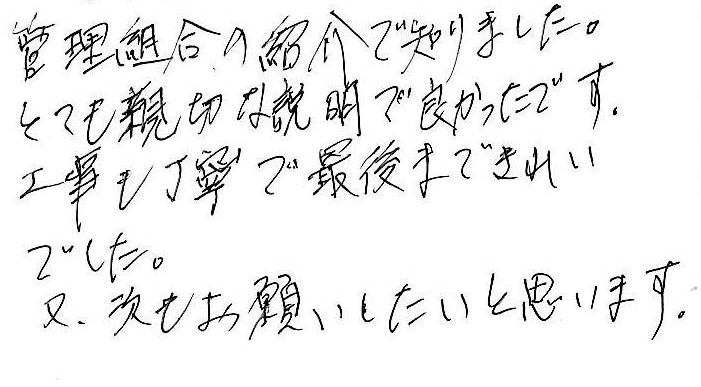 管理組合の紹介で知りました。
とても親切な説明で良かったです。
工事も丁寧で最後まできれい
でした。
又、次もお願いしたいと思います。